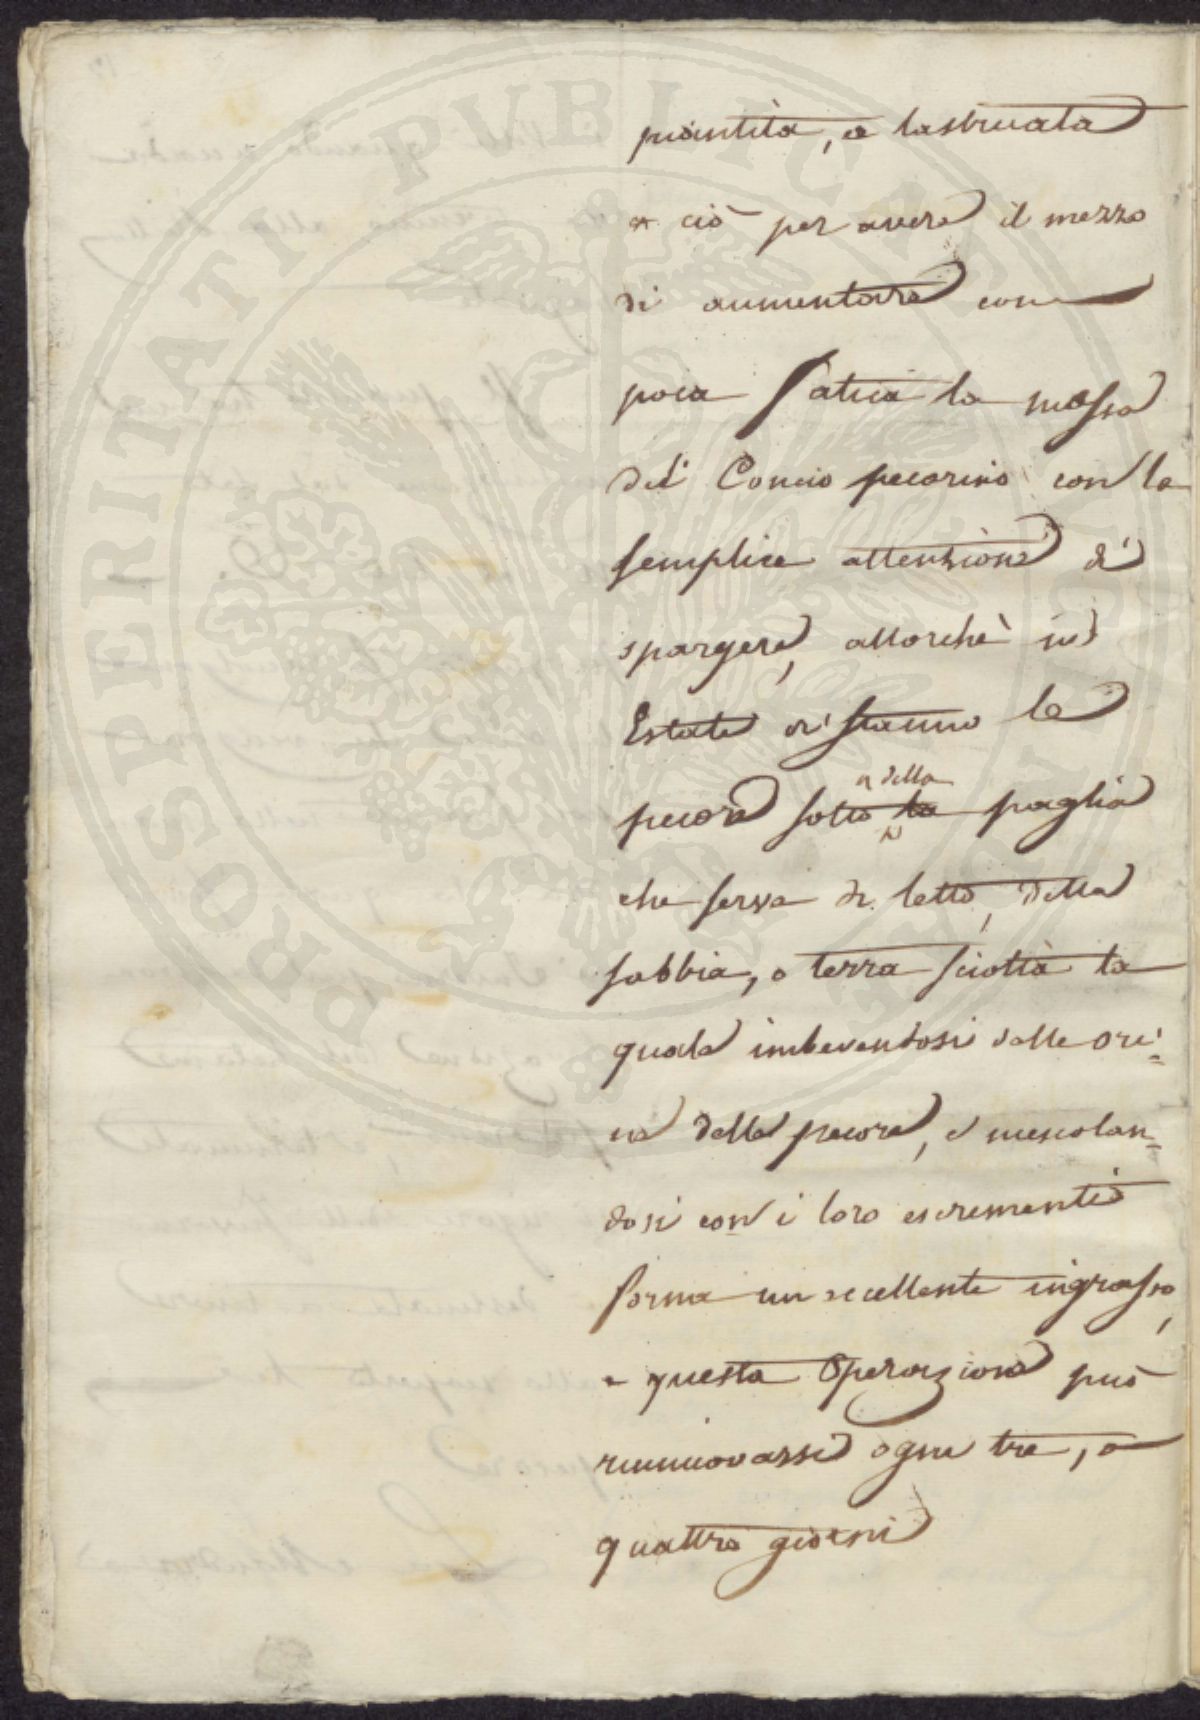 PROSPERITATI PUBLICAE AUGENDAE
piantita, e lastricata
e ciò per avere il mezzo
di aumentare con
poca fatica la massa
del Concio pecorino con la
semplice attenzione di
spargere, allorchè in
Estate vi stanno le
pecore sotto la della paglia
che serve di letto, della
sabbia, o terra sciolta la
quale imbevendosi delle ori=
ne delle pecore, e mescolan=
dosi con i loro escrementi
forma un eccellente ingrasso,
e questa Operazione può
rinnuovarsi ogni tre, o
quattro giorni